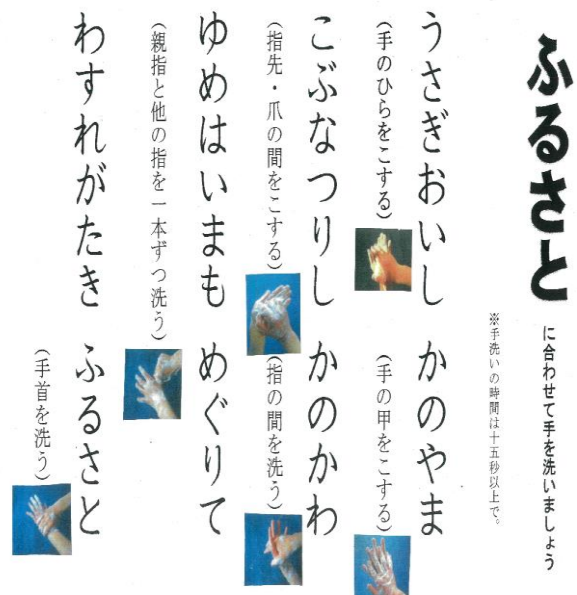 ふるさと に合わせて手を洗いましょう
※手洗いの時間は十五秒以上で。
うさぎおいし かのやま
(手のひらをこする) (手の甲をこする)
こぶなつりし かのかわ
(指先・爪の間をこする) (指の間を洗う)
ゆめはいまも めぐりて
(親指と他の指を一本ずつ洗う)
わすれがたき ふるさと
(手首を洗う)